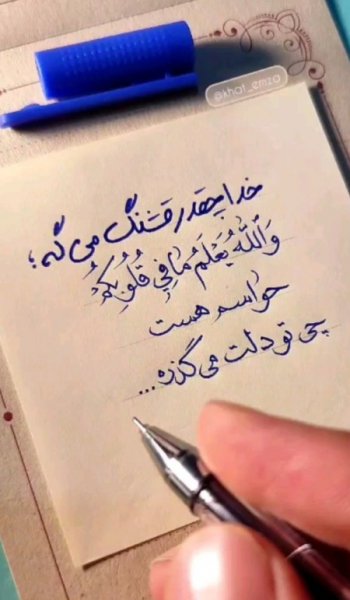 @khat_emza
خدا چقدر قشنگ می گه؛
وَاللَّهُ يَعْلَمُ مَا فِي قُلُوبِكُمْ
حواسم هست
چی تو دلت می گذره...